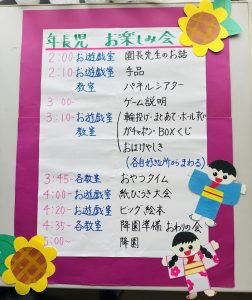 年長児 お楽しみ会
2:00- お遊戯室 園長先生のお話
2:10- お遊戯室 手品
教室 パネルシアター
3:00- ゲーム説明
3:10- お遊戯室 輪投げ・まとあて・ボール
教室 ガチャポン・BOXくじ
おはじきやし
(各自好きな所からまわる)
3:45- 各教室 おやつタイム
4:00- お遊戯室 紙ひこうき大会
4:20- お遊戯室 ビッグ絵本
4:35- 各教室 降園準備 おわりの会
5:00- 降園